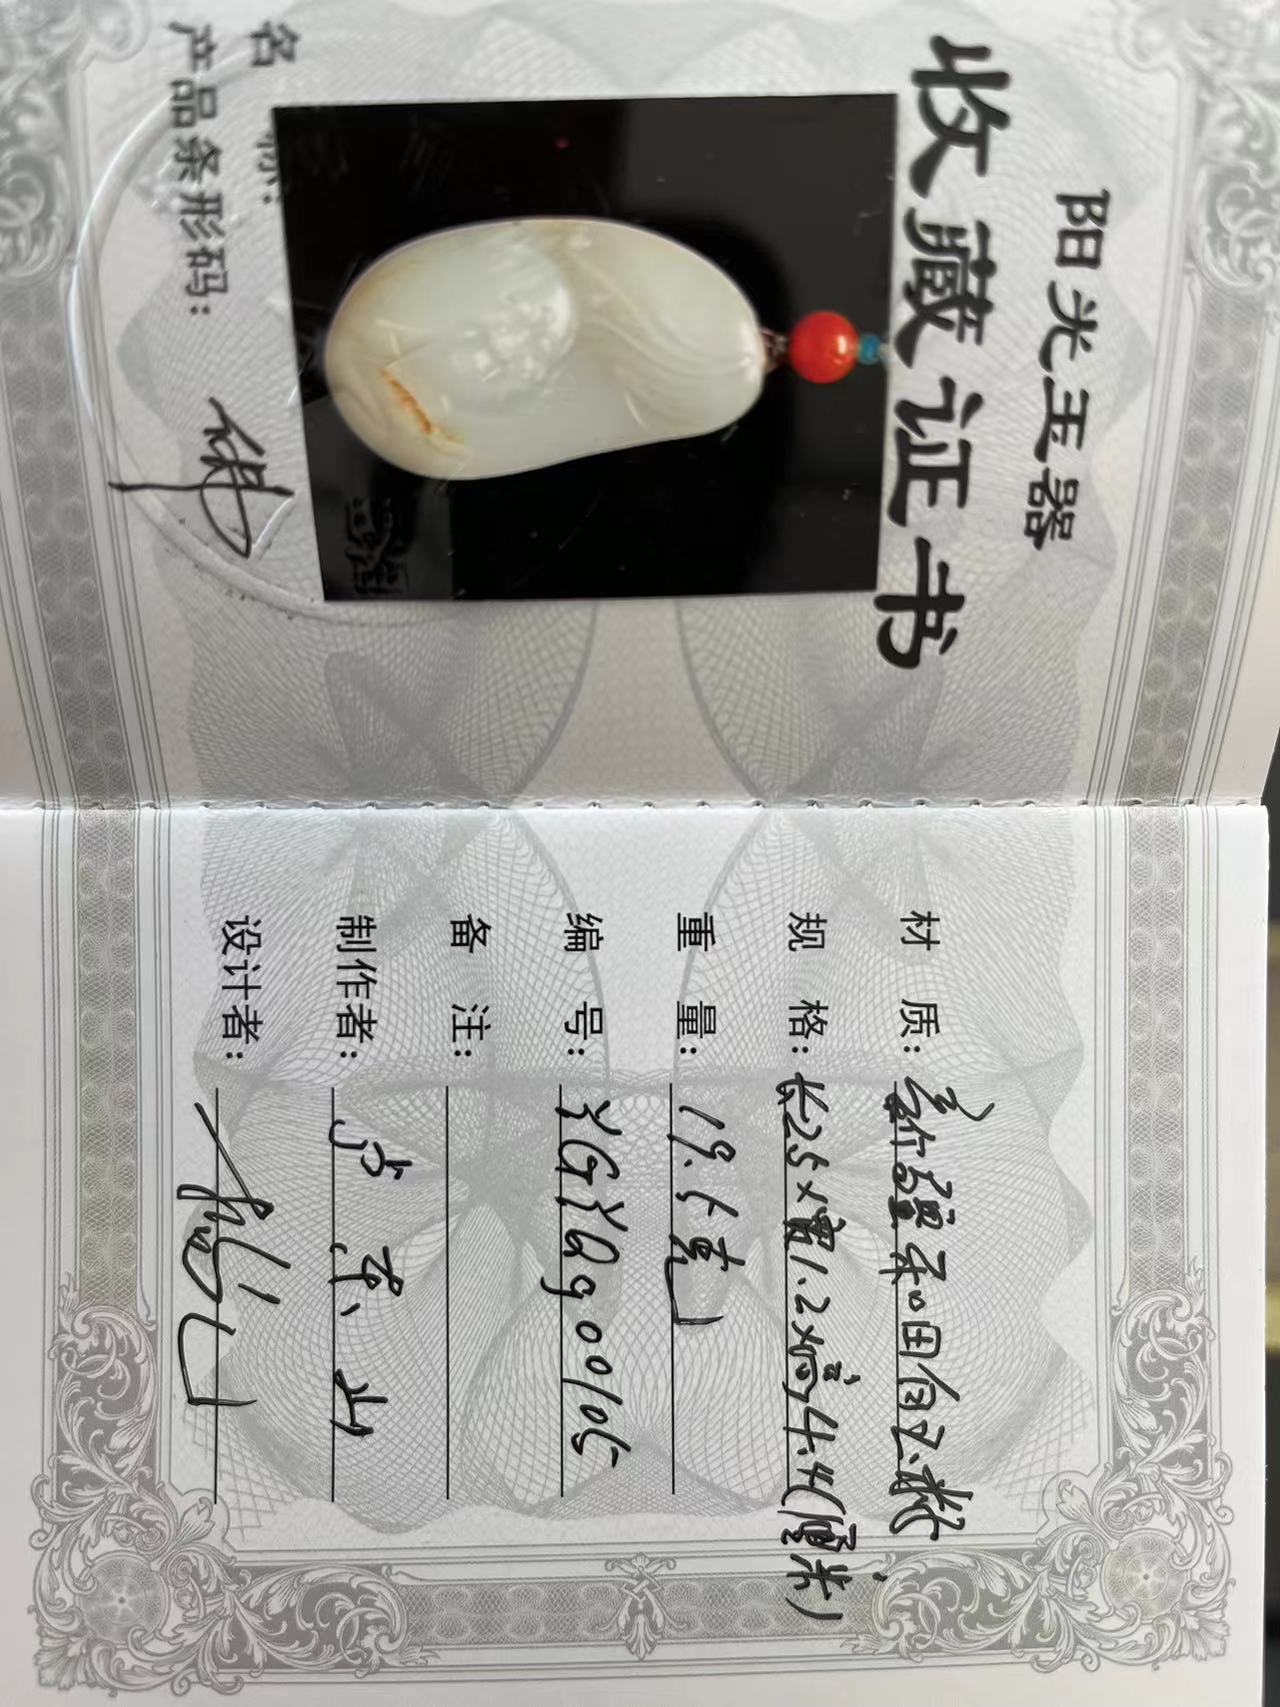 阳光玉器
收藏证书
名 称：佛
产品条形码：
材 质：新疆和田白玉籽
规 格：长2.5×宽1.2×高4.4(厘米)
重 量：19.5克
编 号：YGYQg00105
备 注：
制作者：
设计者：